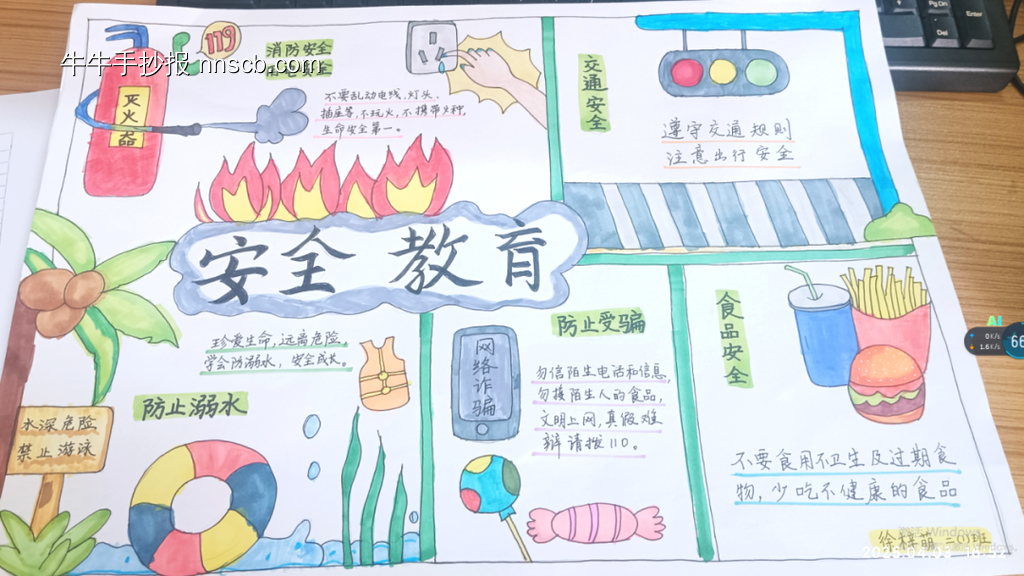 牛牛手抄报 nnscb.com
119
消防安全
用电安全
灭火器
不要乱动电线、灯头、
插座等,不玩火,不携带火种,
生命安全第一。
交通安全
遵守交通规则
注意出行安全
安全教育
珍爱生命,远离危险。
学会防溺水,安全成长。
防止溺水
水深危险
禁止游泳
防止受骗
网络诈骗
勿信陌生电话和信息,
勿接陌生人的食品,
文明上网,真假难
辩请拨110。
食品安全
不要食用不卫生及过期食
物,少吃不健康的食品
PgDn
Enter
Del
AI
0K/s
1.6K/s
66
激活 Windows